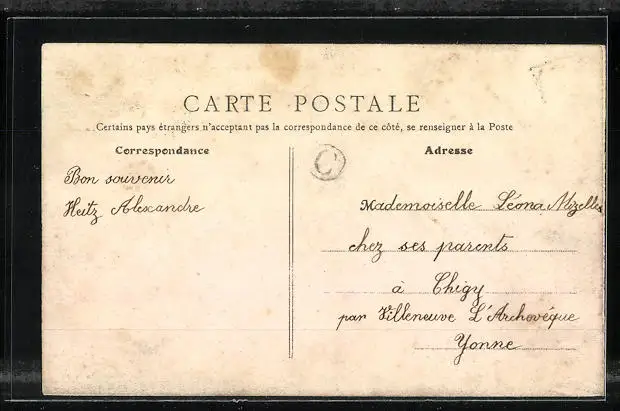 CARTE POSTALE
Certains pays étrangers n'acceptant pas la correspondance de ce côté, se renseigner à la Poste
Correspondance
Adresse
C
Bon souvenir
Heitz Alexandre
Mademoiselle Léona Mizelle
chez ses parents
à Chigy
par Villeneuve L'Archevéque
Yonne